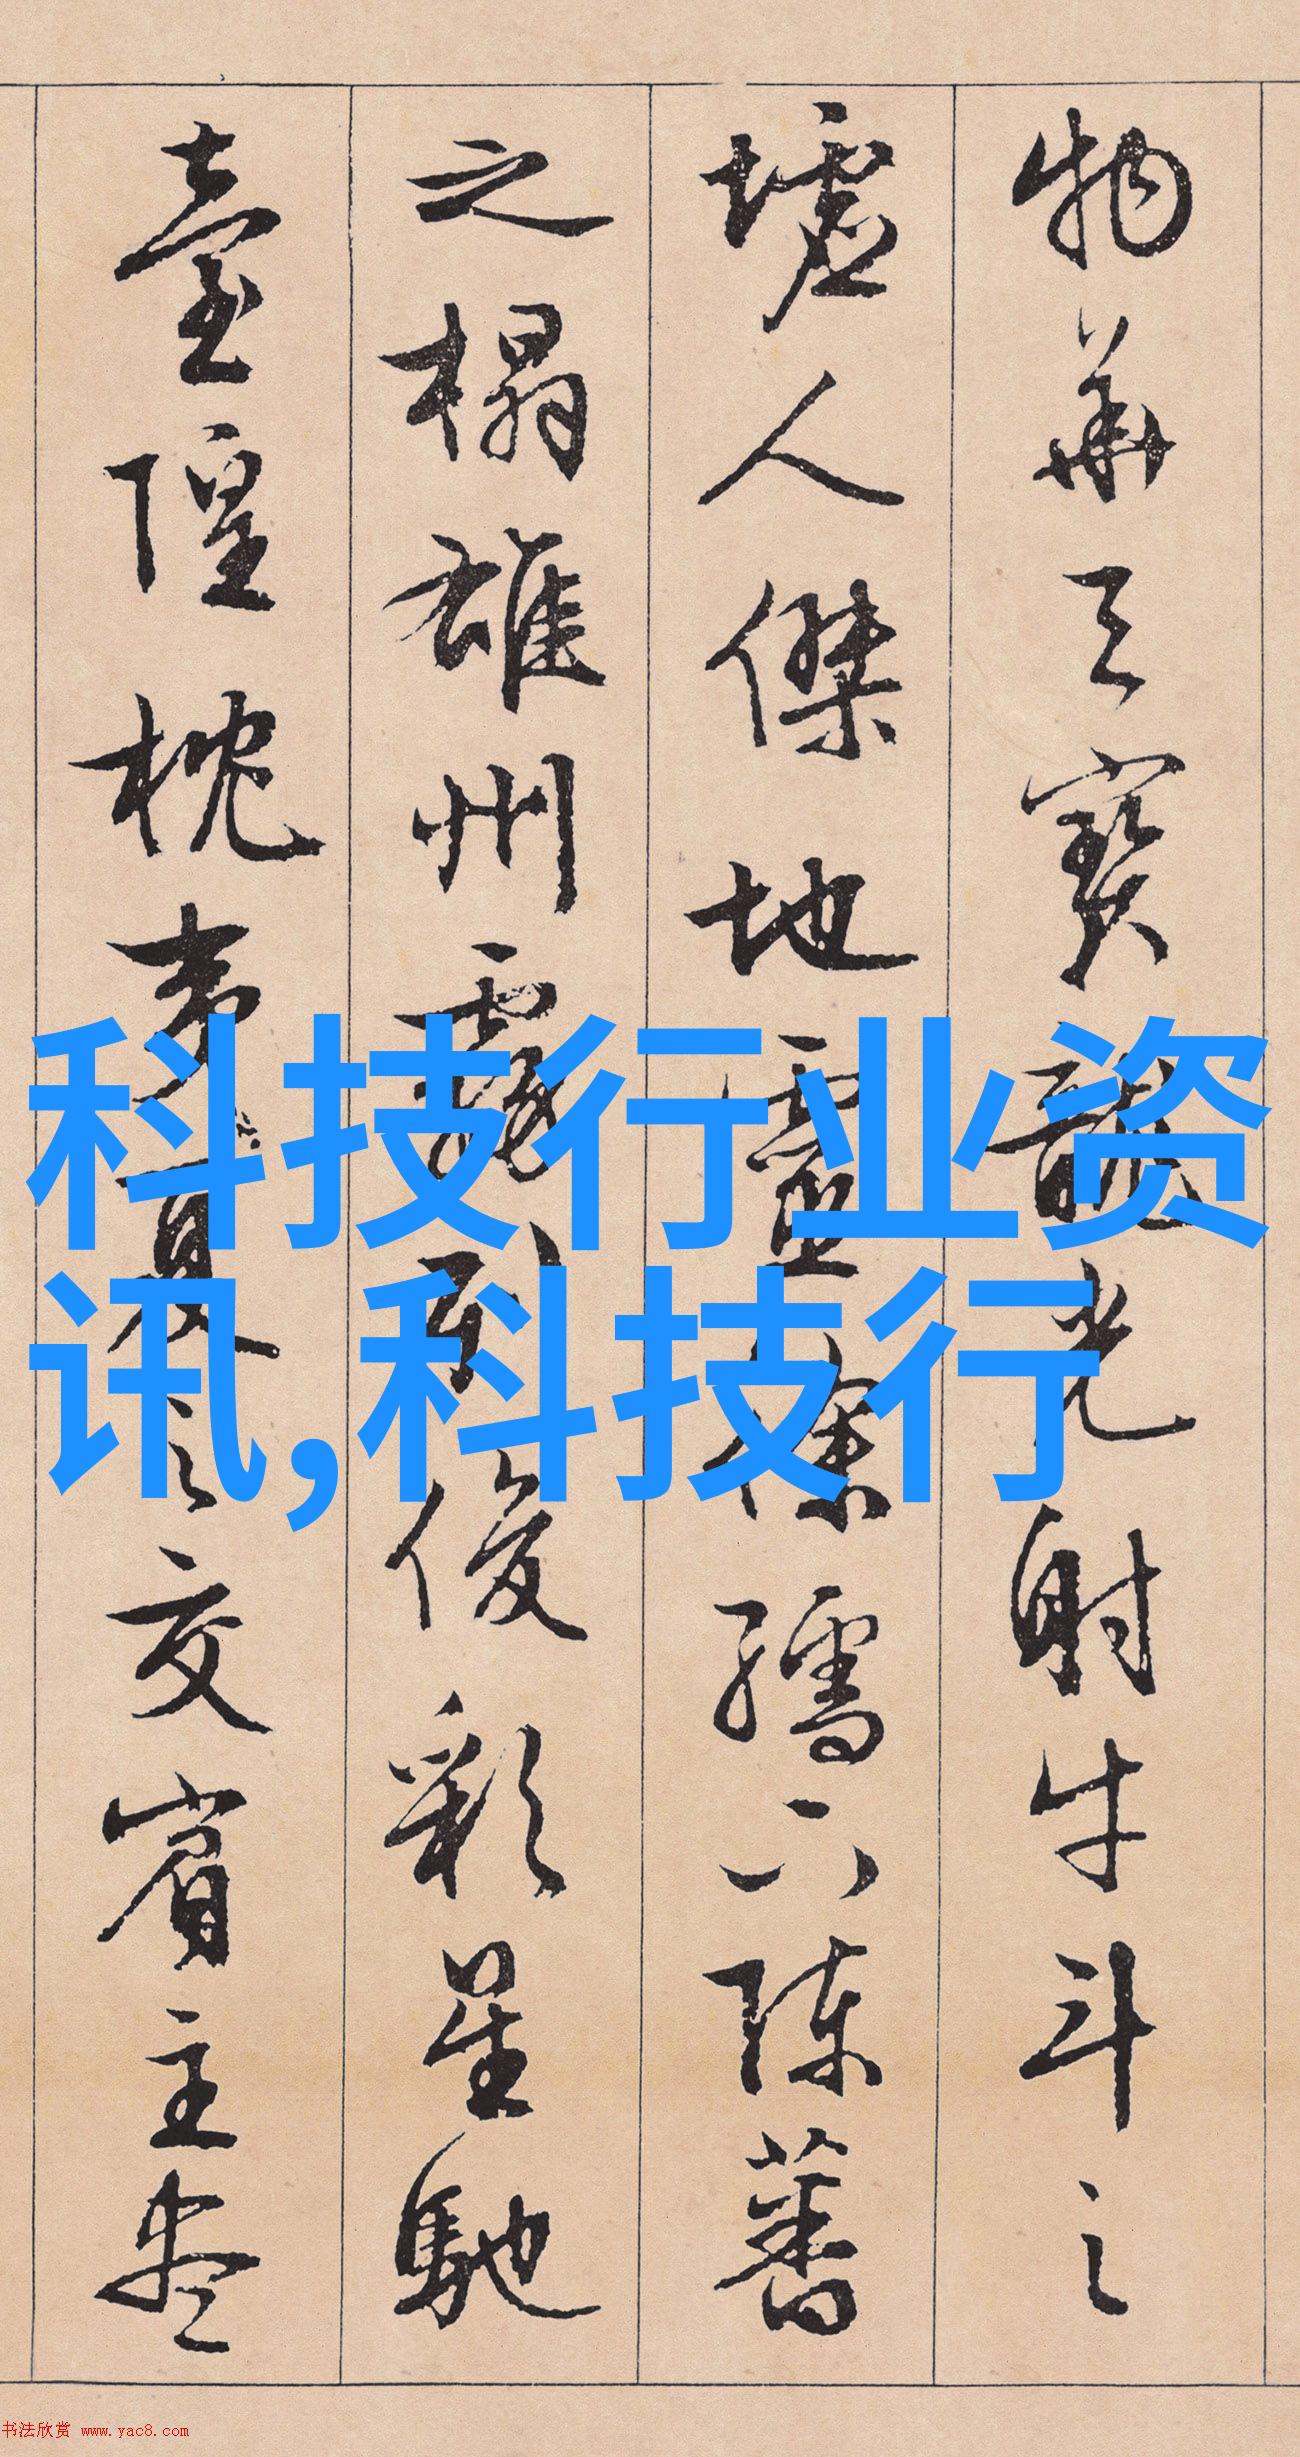 物華天寶龍光射牛斗之
墟人傑地靈徐孺下陳蕃
之榻雄州霧列俊彩星馳
臺隍枕夷夏之交賓主盡
科技行业资
讯,科技行
书法欣赏 www.yac8.com